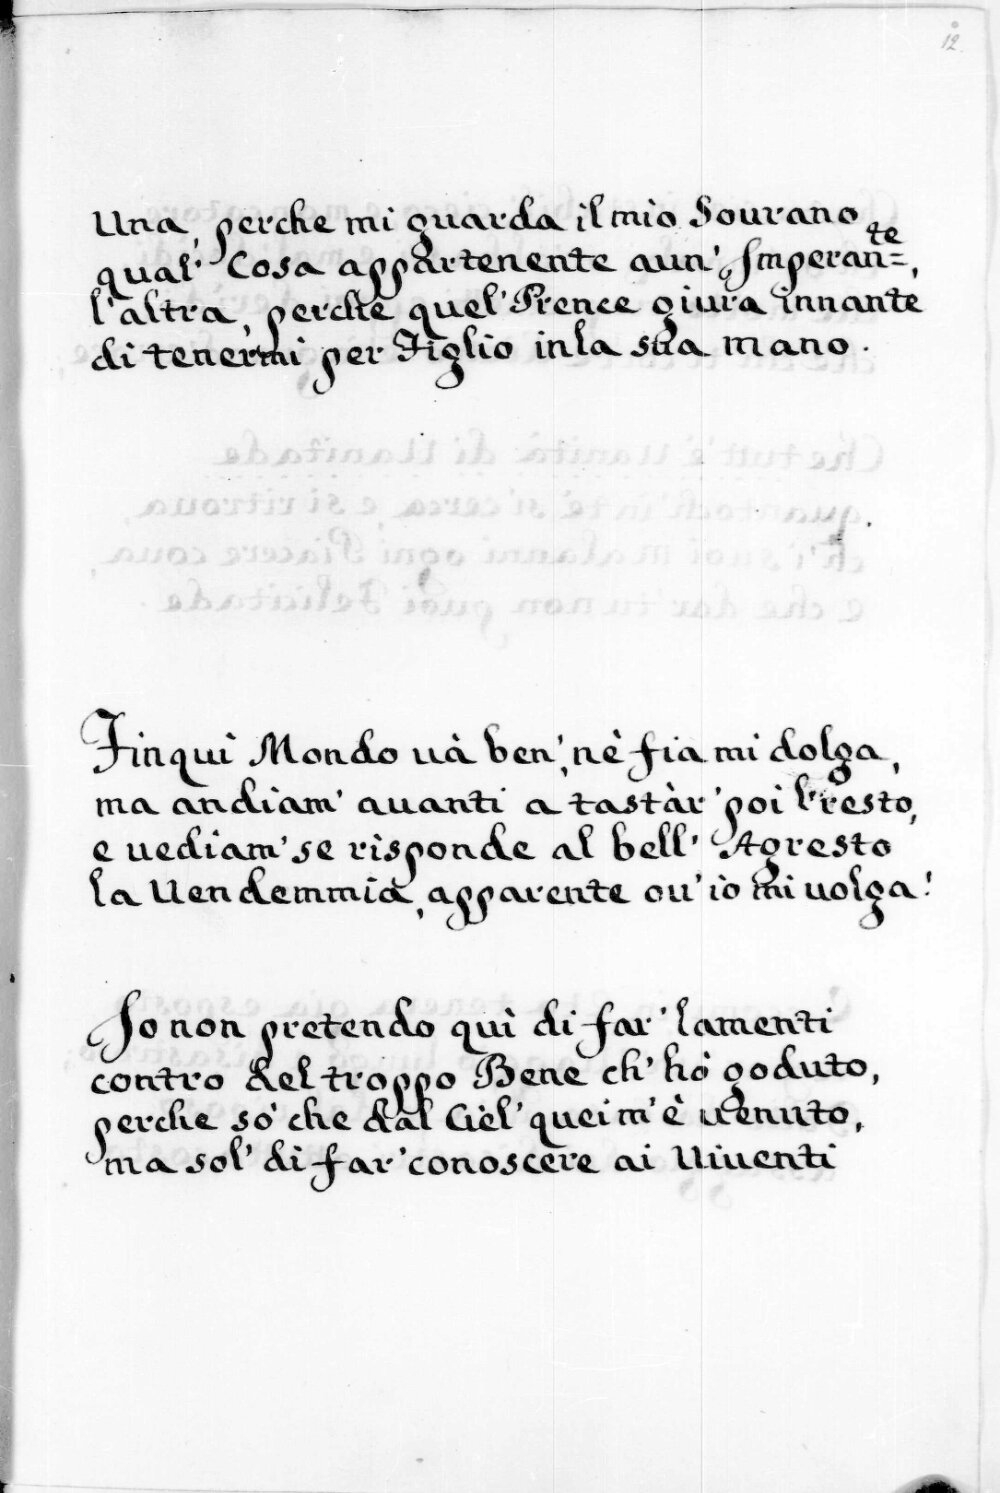 12
Una perche mi guarda il mio Sourano
qual' Cosa appartenente a un' Imperan=te,
l'altra, perche quel' Prence giura innante
di tenermi per Figlio in la sua mano.
Finquì Mondo uà ben', nè fia mi dolga,
ma andiam' auanti a tastàr' poi l'resto,
e uediam' se risponde al bell' Agresto
la Uendemmia, apparente ou' iò mi uolga!
Io non pretendo quì di far' lamenti
contro del troppo Bene ch' hò goduto,
perche sò che dal Cièl' quei m' è uenuto,
ma sol' di far' conoscere ai Uiuenti